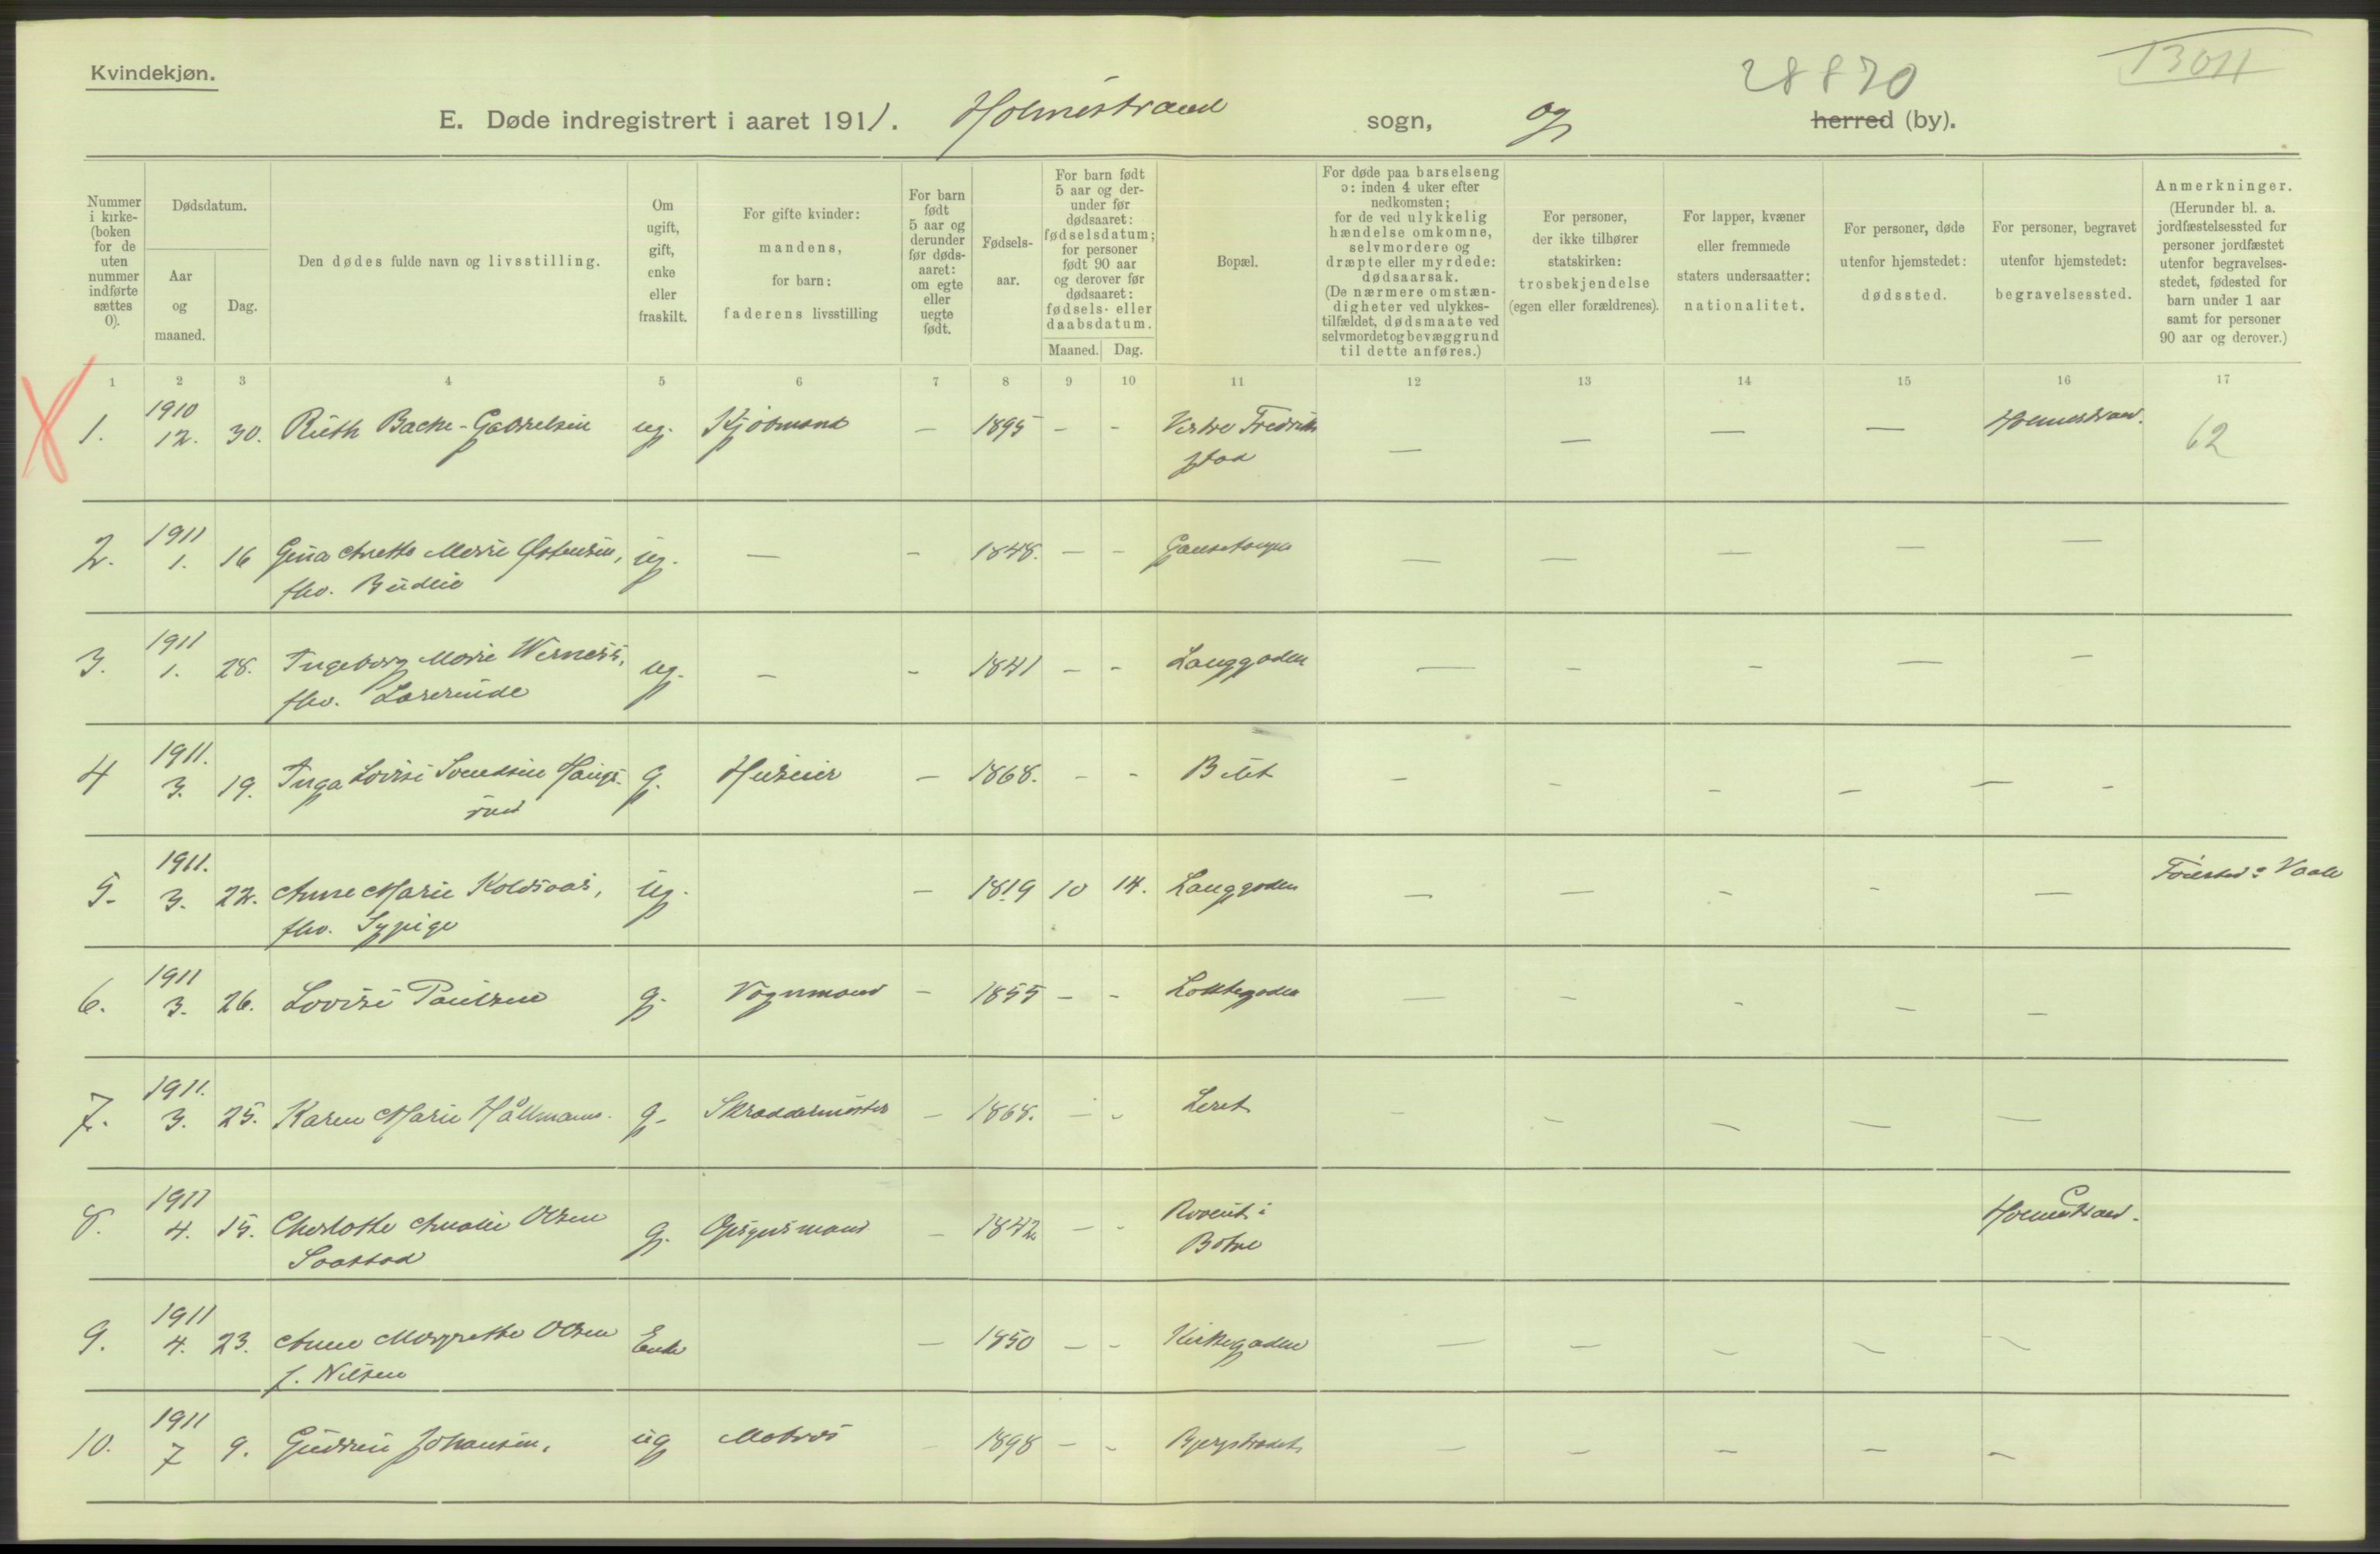 Kvindekjøn.
28870
1301
E. Døde indregistrert i aaret 1911. Holmestrand sogn, og herred (by).
Nummer i kirke-(boken for de uten nummer indførte sættes 0).
Dødsdatum.
Aar og maaned.
Dag.
Den dødes fulde navn og livsstilling.
Om ugift, gift, enke eller fraskilt.
For gifte kvinder: mandens, for barn: faderens livsstilling
For barn født 5 aar og derunder før døds-aaret: om egte eller uegte født.
Fødsels-aar.
For barn født 5 aar og der-under før dødsaaret: fødselsdatum; for personer født 90 aar og derover før dødsaaret: fødsels- eller daabsdatum.
Maaned. Dag.
Bopæl.
For døde paa barselseng ɔ: inden 4 uker efter nedkomsten; for de ved ulykkelig hændelse omkomne, selvmordere og dræpte eller myrdede: dødsaarsak. (De nærmere omstæn-digheter ved ulykkes-tilfældet, dødsmaate ved selvmordet og bevæggrund til dette anføres.)
For personer, der ikke tilhører statskirken: trosbekjendelse (egen eller forældrenes).
For lapper, kvæner eller fremmede staters undersaatter: nationalitet.
For personer, døde utenfor hjemstedet: dødssted.
For personer, begravet utenfor hjemstedet: begravelsessted.
Anmerkninger. (Herunder bl. a. jordfæstelsessted for personer jordfæstet utenfor begravelses-stedet, fødested for barn under 1 aar samt for personer 90 aar og derover.)
1 2 3 4 5 6 7 8 9 10 11 12 13 14 15 16 17
1. 1910 12. 30. Ruth Bache-Gabrielsen ug. Kjøbmand — 1895 - - Vestre Fredrik
stad — — — — Holmestrand. 62
2. 1911 1. 16 Gina Anette Marie Østensen, ug. — - 1848. — - — — — — —
fhv. Budeie
3. 1911 1. 28. Ingeborg Marie Werness, ug. - - 1841 - - Langgaden — - - — -
fhv. Lærerinde
4 1911. 3. 19. Inga Lovise Svendsen Haugs- g. Huseier - 1868. - - - - - - - -
rud
5. 1911. 3. 22. Anne Marie Koldsaas, ug. - 1819 10 14. Langgaden — — - - — Fødested: Vaale
fhv. Sypige
6. 1911 3. 26. Lovise Paulsen g. Vognmand - 1855 - - — - - - -
7. 1911. 3. 25. Karen Marie Hållmann. g. Skræddermester - 1868. - - - - — — —
8. 1911 4. 15. Charlotte Amalie Olsen g. Opsynsmand - 1842 - - i Holmestrand.
Saastad Botne
9. 1911 4. 23. Anne Margrethe Olsen Enke - 1850 - - Kirkegaden — — - - -
f. Nilsen
10. 1911 7 9. Gudrun Johansen. ug Matros - 1898 - - — - - - -